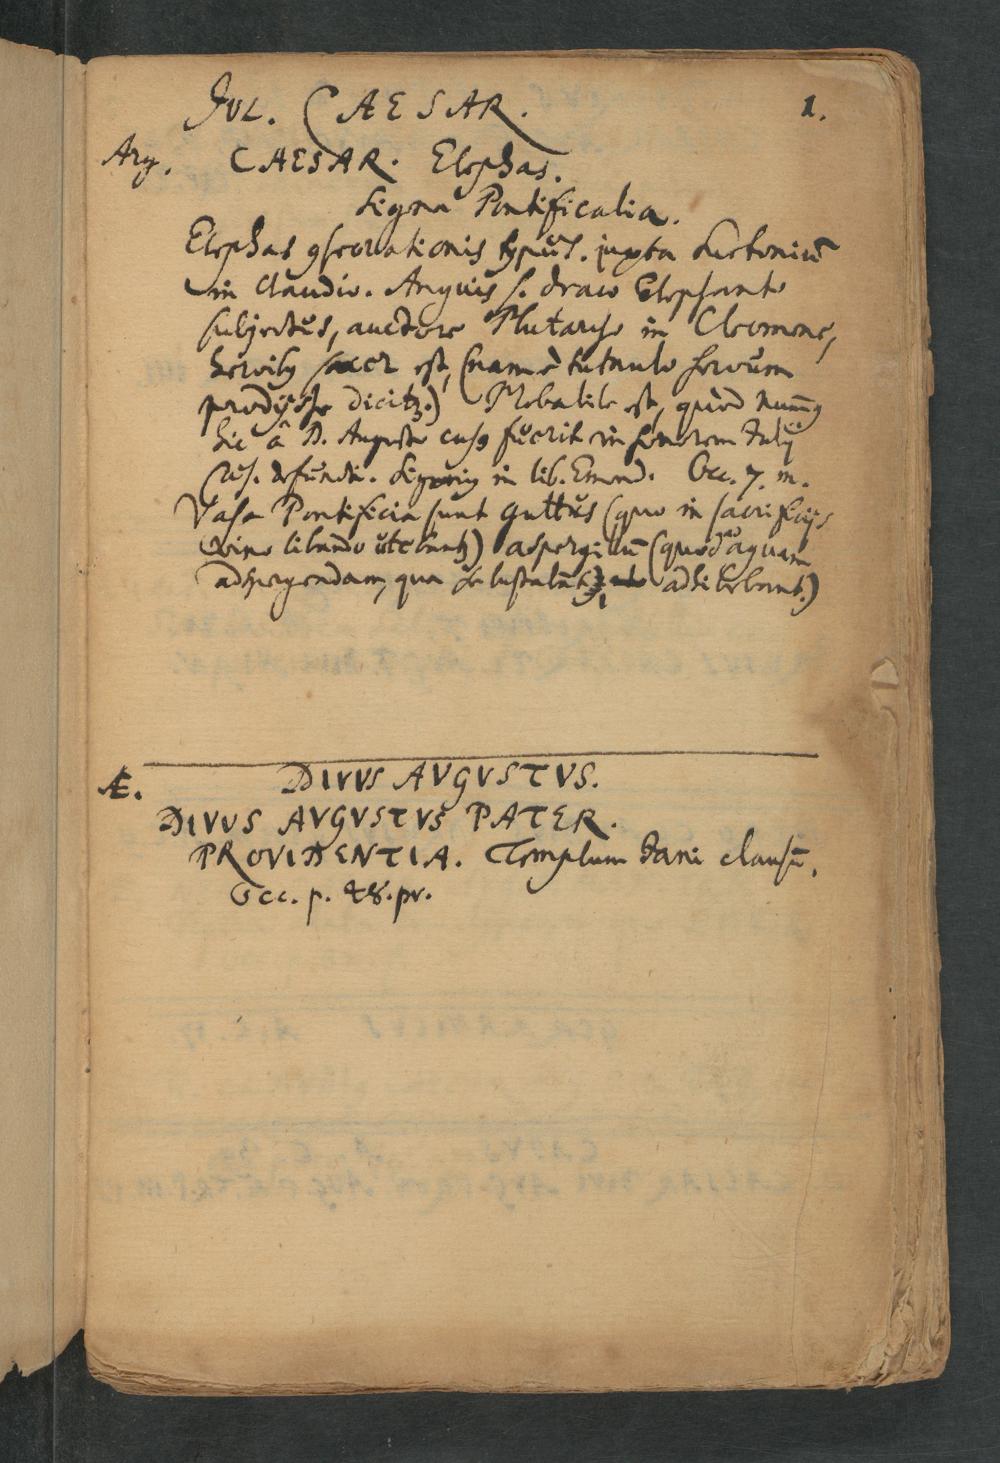 JUL. CAESAR. 1.
Arg. CAESAR. Elephas.
Signa Pontificalia.
Elephas consecrationis typus. juxta Suetoniū
in Claudio. Anguis s. draco Elephante
subjectus, auctore Plutarcho in Cleomene,
heroibꝫ sacer est, (nam è tumulo servum
prodijsse dicitꝛ.) Probabile est, quòd num̄ꝰ
hic â D. Augusto cusꝰ fuerit in honorem Julij
Cæs. defuncti. in lib. Emend. Occ. 7. m.
Vasa Pontificia sunt guttus (quo in sacrificijs
vino libando utebantꝛ) aspergillū (quod ad aquam
adspergendam, qua se adhibebant.)
Æ. DIVVS AVGVSTVS.
DIVVS AVGVSTVS PATER.
PROVIDENTIA. Templum Jani clausū.
Occ. p. 48. pr.